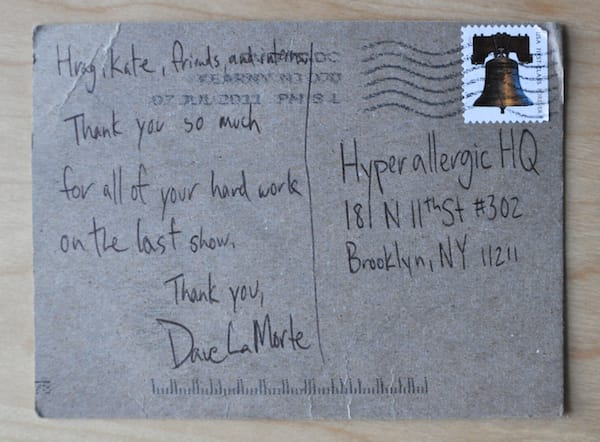 Hragikate, friends and interns!
KEARNY NJ 070
07 JUL 2011 PM 5 L
Thank you so much
for all of your hard work
on the last show.
Thank you,
Dave LaMorte
Hyperallergic HQ
181 N 11th St #302
Brooklyn, NY 11211
USA FIRST-CLASS FOREVER